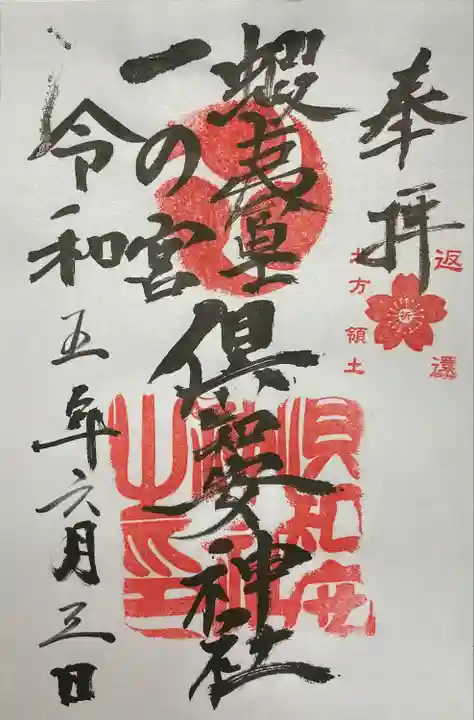 奉拝
返還
祈
北方領土
蝦夷
倶知安神社
一の宮
令和五年六月三日
倶知安
之印